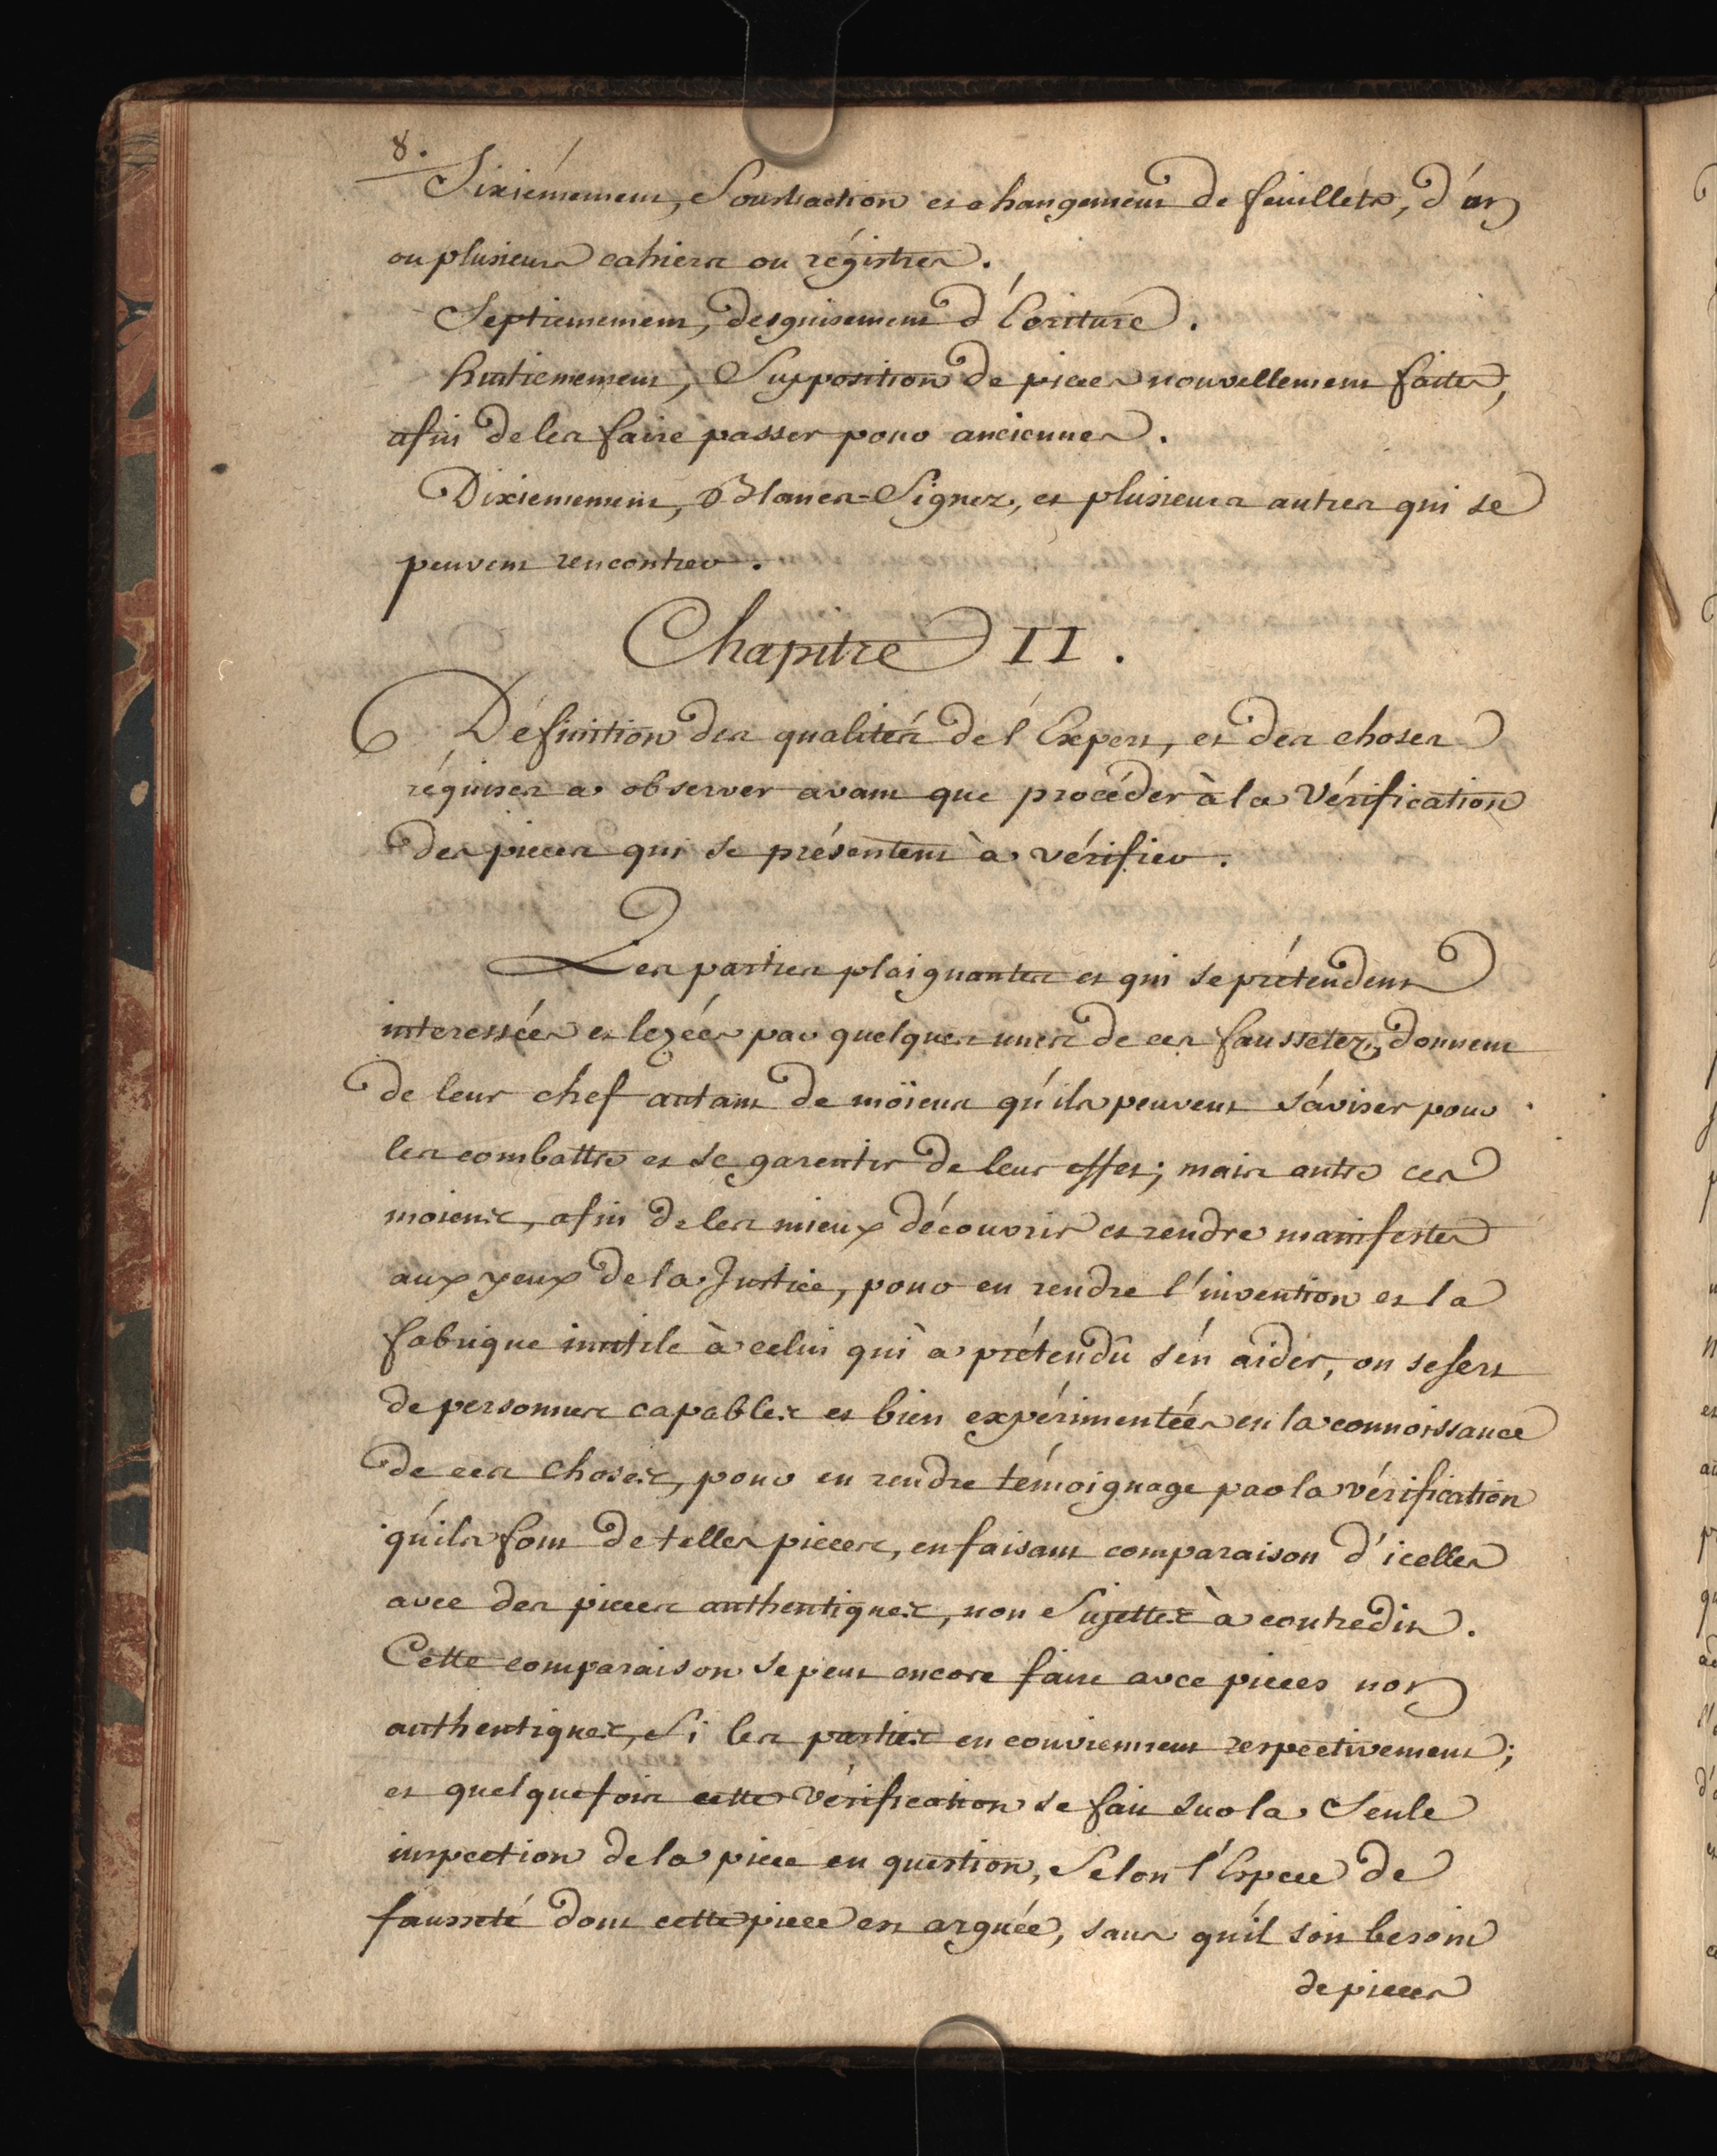 8.
Sixiémement, Soustraction et changement de feuillets, d'un
ou plusieurs cahiers ou régistres.
Septiemement, desguisement d'Ecriture.
huitiemement, Supposition de pieces nouvellement faites,
afin de les faire passer pour anciennes.
Dixiemement, Blancs-Signez, et plusieurs autres qui se
peuvent rencontrer.
Chapitre II.
Définition des qualités de l'Expert, et des choses
réquises a observer avant que procéder à la Vérification
des pieces qui se présentent à vérifier.
Les parties plaignantes et qui se prétendent
interessées et lezées par quelques unes de ces faussetez, donnent
de leur chef autant de moïens qu'ils peuvent s'aviser pour
les combattre et se garentir de leur effet; mais outre ces
moiens, afin de les mieux découvrir et rendre manifestes
aux yeux de la Justice, pour en rendre l'invention et la
fabrique inutile à celui qui à prétendû s'en aider, on se sert
de personnes capables et bien expérimentées en la connoissance
de ces choses, pour en rendre témoignage par la vérification
qu'ils font de telles pieces, en faisant comparaison d'icelles
avec des pieces authentiques, non Sujettes à contredits.
Cette comparaison se peut encore faire avec pieces non
authentiques, Si les parties en conviennent respectivement;
et quelquefois cette vérification se fait sur la Seule
inspection de la piece en question, Selon l'Espece de
fausseté dont cette piece est arguée, sans qu'il soit besoin
de pieces